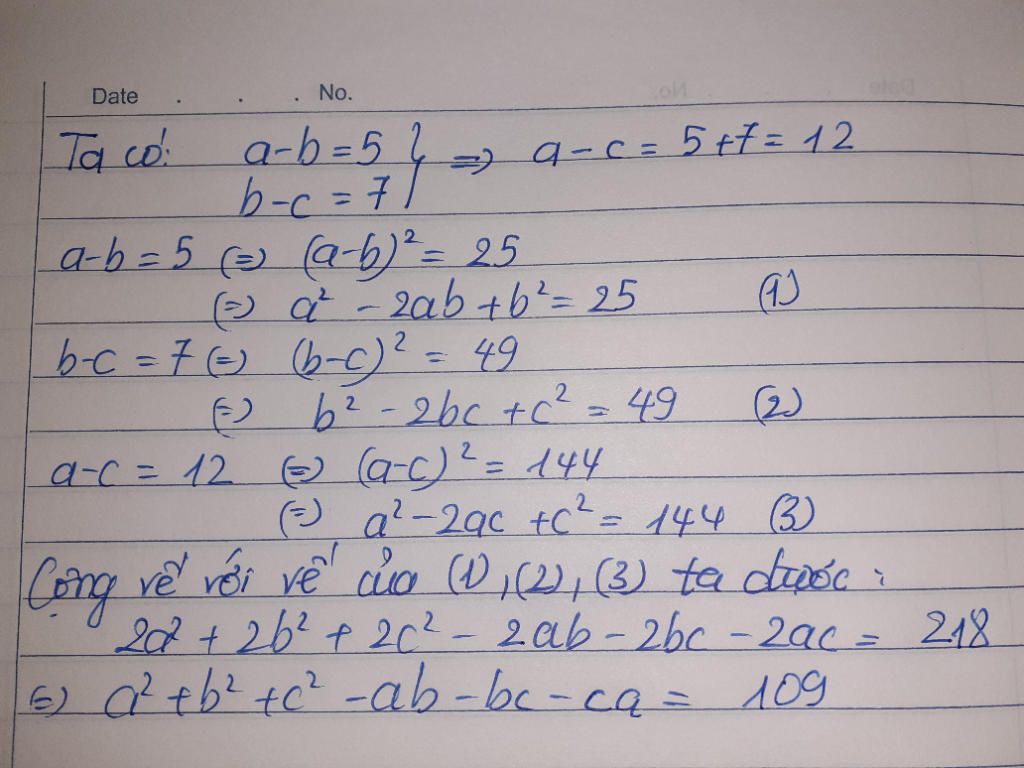 Date . . . No.
Ta có: a-b = 5 } => a-c = 5+7 = 12
b-c = 7
a-b = 5 (=) (a-b)² = 25
(=) a² - 2ab + b² = 25 (1)
b-c = 7 (=) (b-c)² = 49
(=) b² - 2bc + c² = 49 (2)
a-c = 12 (=) (a-c)² = 144
(=) a² - 2ac + c² = 144 (3)
Cộng vế với vế của (1), (2), (3) ta được :
2a² + 2b² + 2c² - 2ab - 2bc - 2ac = 218
(=) a² + b² + c² - ab - bc - ca = 109